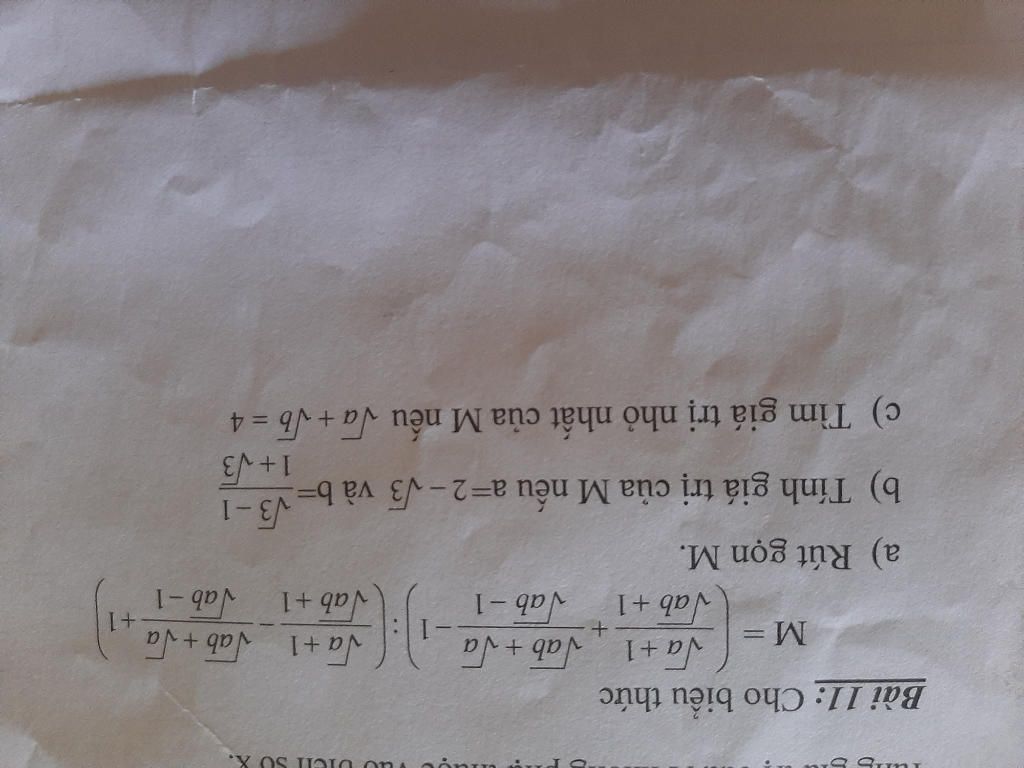 phụ thuộc vào biến số x.
Bài 11: Cho biểu thức
M = \left( \frac{\sqrt{a}+1}{\sqrt{ab}+1} + \frac{\sqrt{ab}+\sqrt{a}}{\sqrt{ab}-1} - 1 \right) : \left( \frac{\sqrt{a}+1}{\sqrt{ab}+1} - \frac{\sqrt{ab}+\sqrt{a}}{\sqrt{ab}-1} + 1 \right)
a) Rút gọn M.
b) Tính giá trị của M nếu a=2-\sqrt{3} và b=\frac{\sqrt{3}-1}{1+\sqrt{3}}
c) Tìm giá trị nhỏ nhất của M nếu \sqrt{a}+\sqrt{b}=4